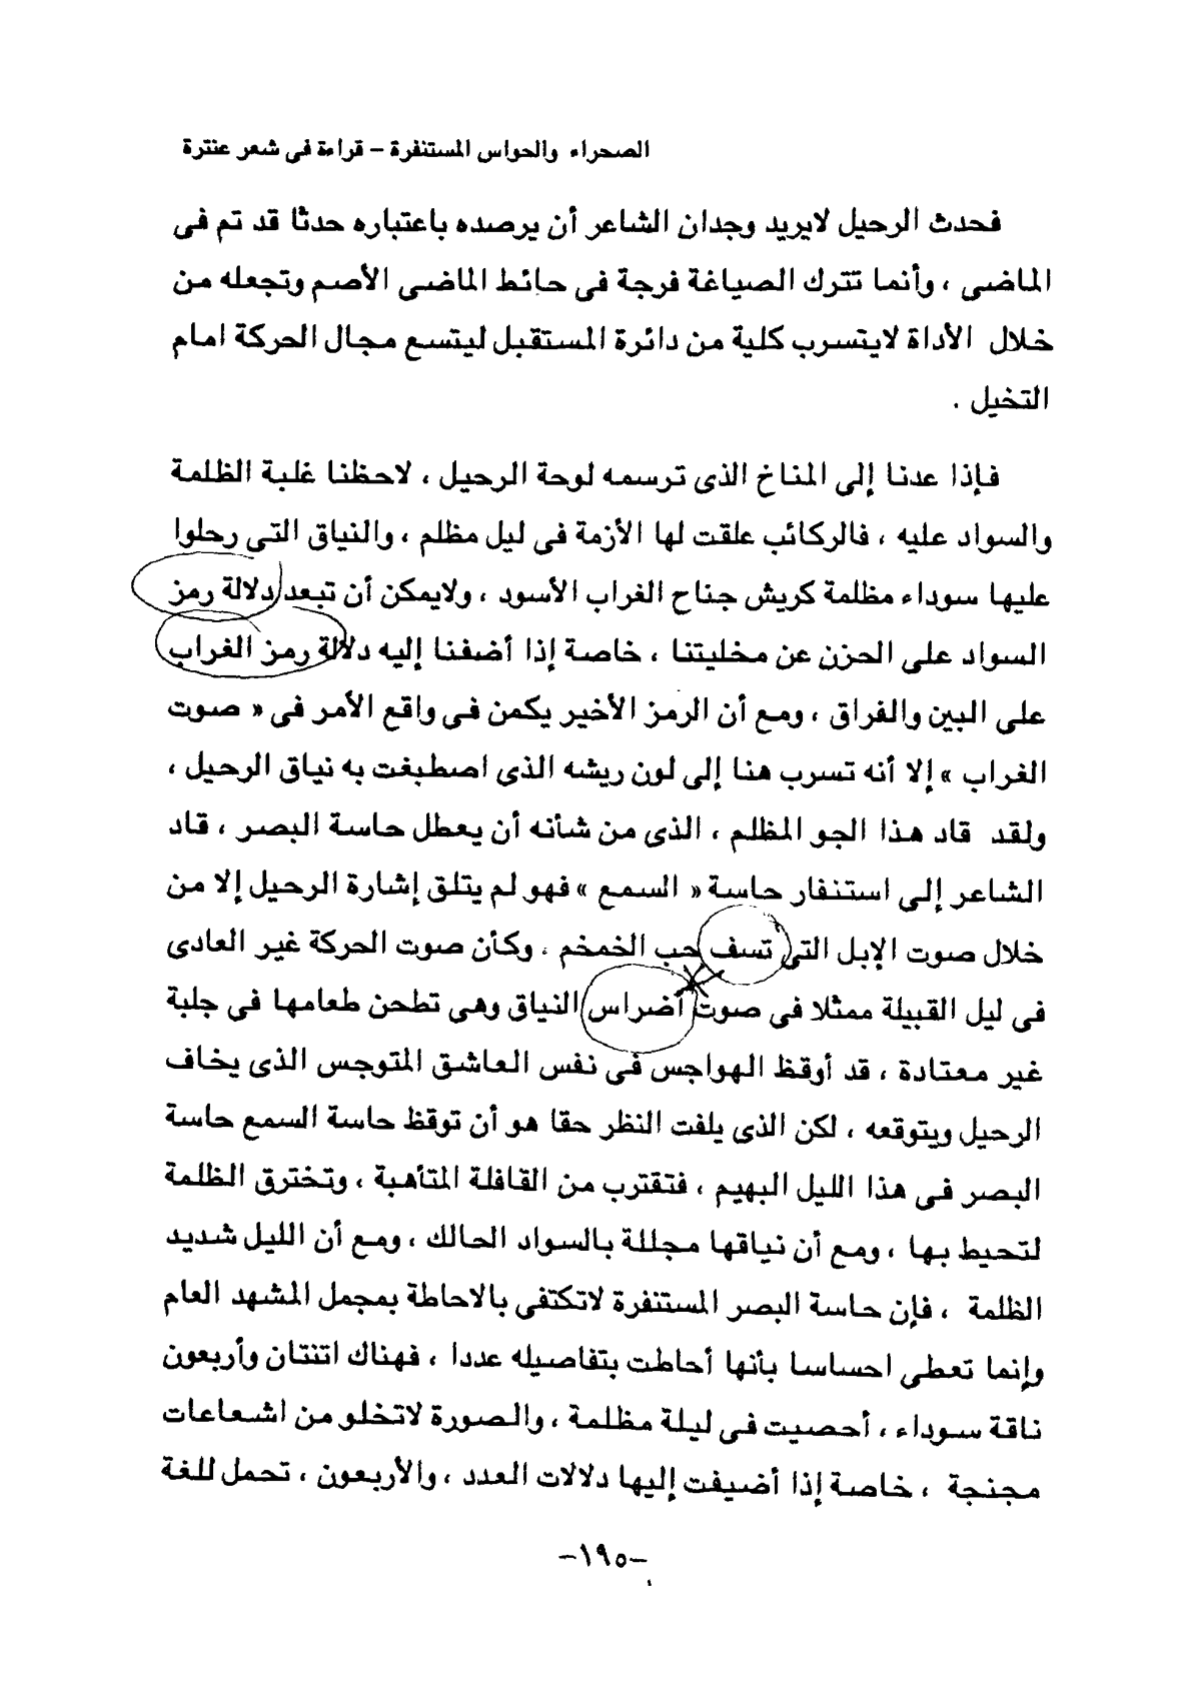 الصحراء والحواس المستنفرة – قراءة فى شعر عنترة
فحدث الرحيل لايريد وجدان الشاعر أن يرصده باعتباره حدثا قد تم فى
الماضى ، وأنما تترك الصياغة فرجة فى حائط الماضى الأصم وتجعله من
خلال الأداة لايتسرب كلية من دائرة المستقبل ليتسع مجال الحركة امام
التخيل .
فإذا عدنا إلى المناخ الذى ترسمه لوحة الرحيل ، لاحظنا غلبة الظلمة
والسواد عليه ، فالركائب علقت لها الأزمة فى ليل مظلم ، والنياق التى رحلوا
عليها سوداء مظلمة كريش جناح الغراب الأسود ، ولايمكن أن تبعد دلالة رمز
السواد على الحزن عن مخليتنا ، خاصة إذا أضفنا إليه دلالة رمز الغراب
على البين والفراق ، ومع أن الرمز الأخير يكمن فى واقع الأمر فى « صوت
الغراب » إلا أنه تسرب هنا إلى لون ريشه الذى اصطبغت به نياق الرحيل ،
ولقد قاد هذا الجو المظلم ، الذى من شأنه أن يعطل حاسة البصر ، قاد
الشاعر إلى استنفار حاسة « السمع » فهو لم يتلق إشارة الرحيل إلا من
خلال صوت الإبل التى تسف حب الخمخم ، وكأن صوت الحركة غير العادى
فى ليل القبيلة ممثلا فى صوت أضراس النياق وهى تطحن طعامها فى جلبة
غير معتادة ، قد أوقظ الهواجس فى نفس العاشق المتوجس الذى يخاف
الرحيل ويتوقعه ، لكن الذى يلفت النظر حقا هو أن توقظ حاسة السمع حاسة
البصر فى هذا الليل البهيم ، فتقترب من القافلة المتأهبة ، وتخترق الظلمة
لتحيط بها ، ومع أن نياقها مجللة بالسواد الحالك ، ومع أن الليل شديد
الظلمة ، فإن حاسة البصر المستنفرة لاتكتفى بالاحاطة بمجمل المشهد العام
وإنما تعطى احساسا بأنها أحاطت بتفاصيله عددا ، فهناك اتنتان وأربعون
ناقة سوداء ، أحصيت فى ليلة مظلمة ، والصورة لاتخلو من اشعاعات
مجنجة ، خاصة إذا أضيفت إليها دلالات العدد ، والأربعون ، تحمل للغة
-١٩٥-